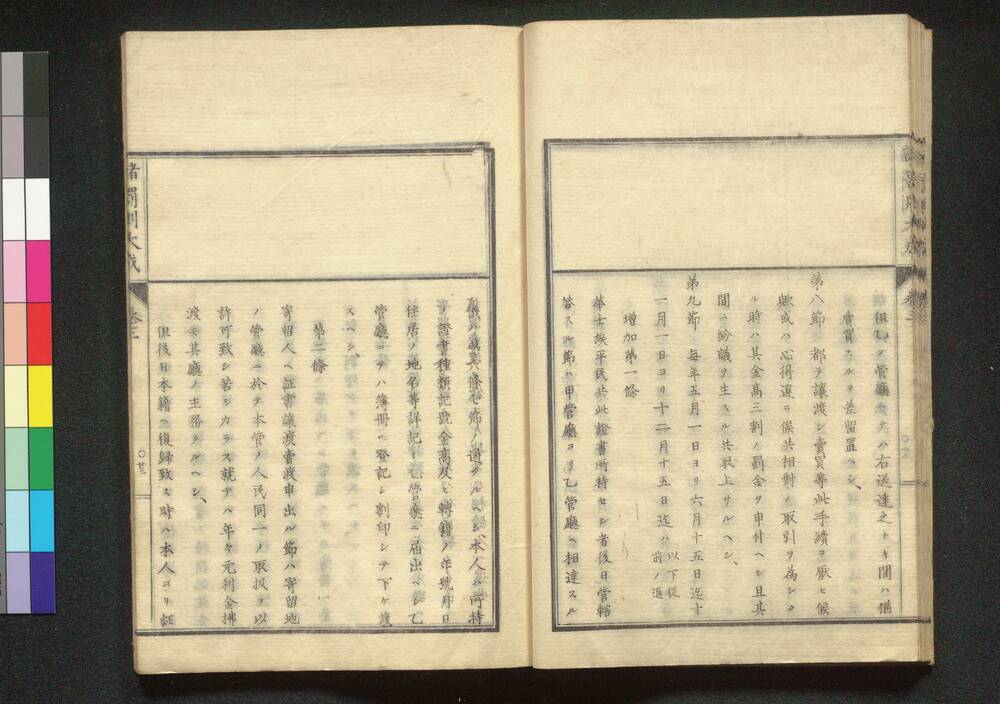 但乙ノ管廳ニテハ右送達之ナキ間ハ猶
賣買スルヲ差留置ヘシ、
第八節　都テ讓渡シ賣買等此手續ヲ厭ヒ候
歟或ハ心得違ニ候共相對ノ取引ヲ為シタ
ル時ハ其金高三割ノ罰金ヲ申付ヘシ且其
間ニ紛議ヲ生スル共取上サルヘシ、
第九節　毎年五月一日ヨリ六月十五日迄十
一月一日ヨリ十二月十五日迄ハ
以下從
前ノ通
增加第一條
華士族平民共此證書所持セシ者後日管轄
替スル節ハ甲管廳ヨリ乙管廳ヘ相達スル
諸罰則大成
卷三
條七節ノ通タルヘシ本人ハ所持
ノ證書種類記號金高及ヒ轉籍ノ年號月日
住居ノ地名等詳記シ乙管廳ニ届出ヘシ乙
管廳ニテハ簿冊ヘ登記シ割印シテ下ケ渡
スヘシ
第二條
寄留人ヘ証書讓渡賣渡申出ル節ハ寄留地
ノ管廳ニ於テ本管ノ人民同一ノ取扱ヲ以
許可致シ若シカラス就テハ年々元利金拂
渡モ其廳ノ主務タルヘシ、
但後日本籍ヘ復歸致ス時ハ本人ヨリ証